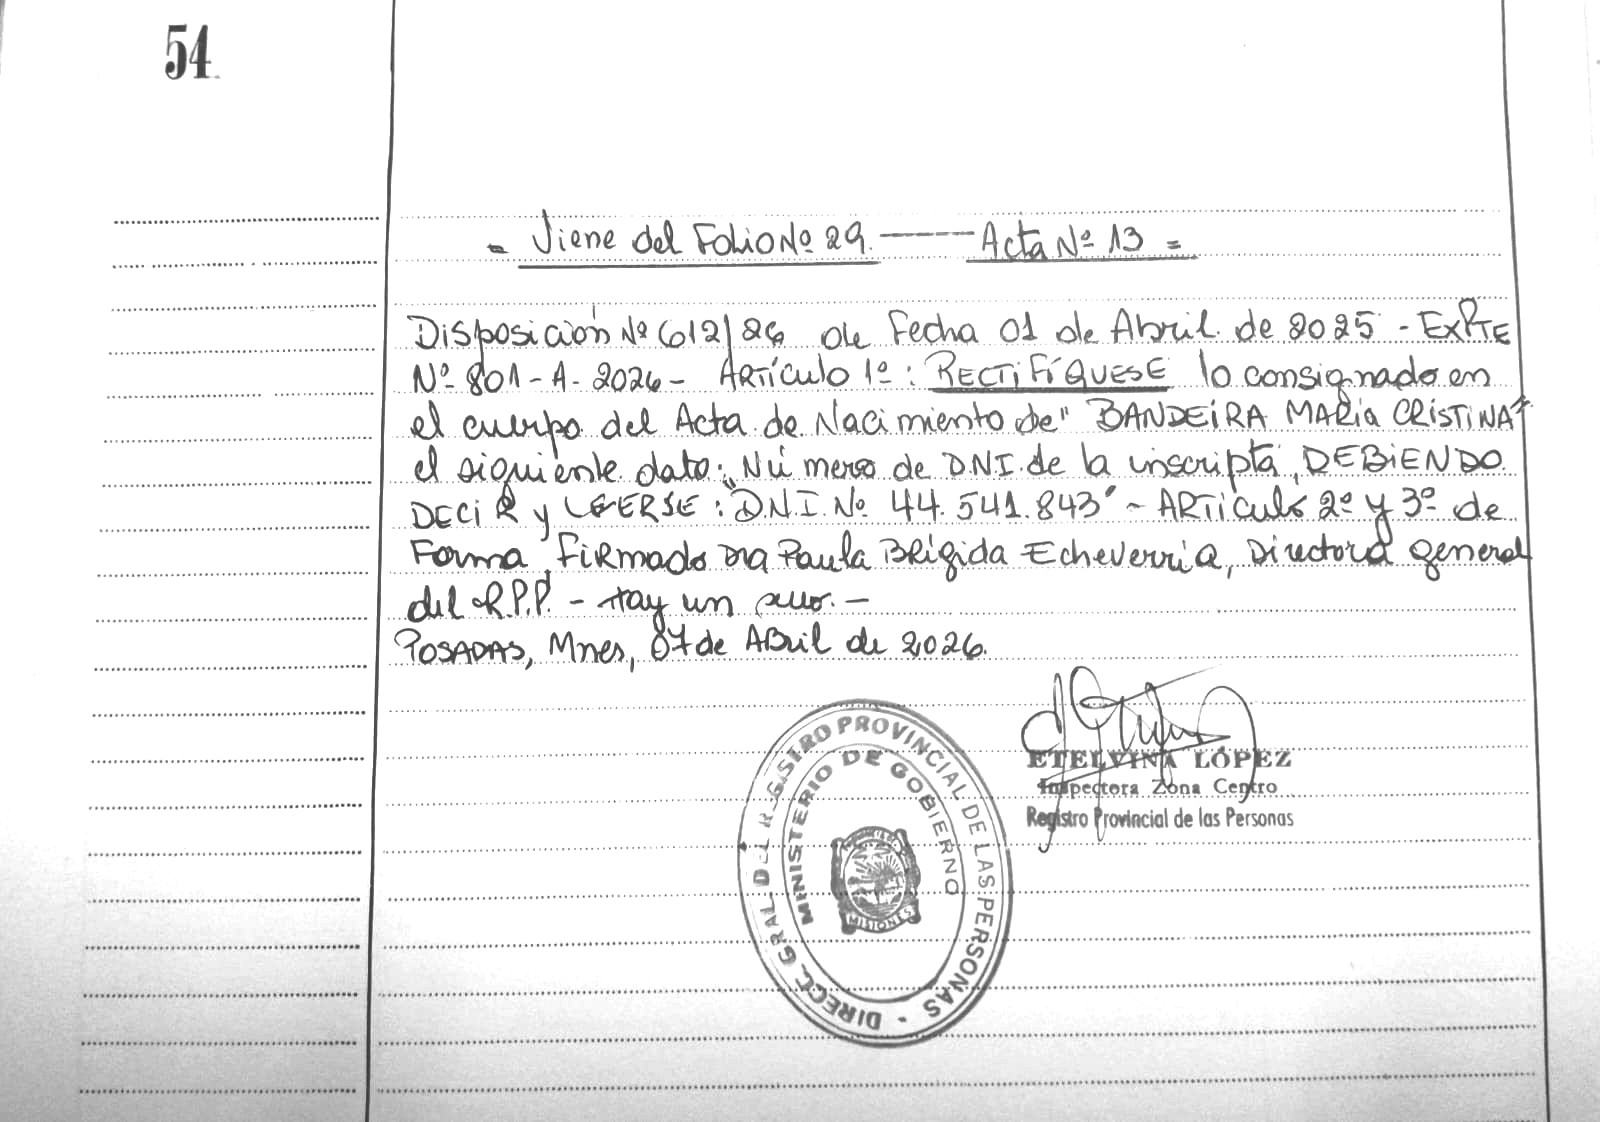 54
= Viene del Folio Nº 29. ——— Acta Nº 13 =
Disposición Nº 612/26 de Fecha 01 de Abril de 2025 - EXPTE
Nº 801-A-2026- ARTÍCULO 1º: RECTIFÍQUESE lo consignado en
el cuerpo del Acta de Nacimiento de "BANDEIRA MARÍA CRISTINA"
el siguiente dato: Número de D.N.I. de la inscripta, DEBIENDO
DECIR y LEERSE: "D.N.I. Nº 44.541.843" - ARTÍCULO 2º y 3º de
Forma, FIRMADO DRA Paula BRÍGIDA Echeverria, Directora general
del R.P.P. - Hay un sello. -
POSADAS, Mnes, 07 de ABRIL de 2026.
ETELVINA LÓPEZ
Inspectora Zona Centro
Registro Provincial de las Personas
DIRECC. GRAL DEL REGISTRO PROVINCIAL DE LAS PERSONAS -
MINISTERIO DE GOBIERNO
MISIONES